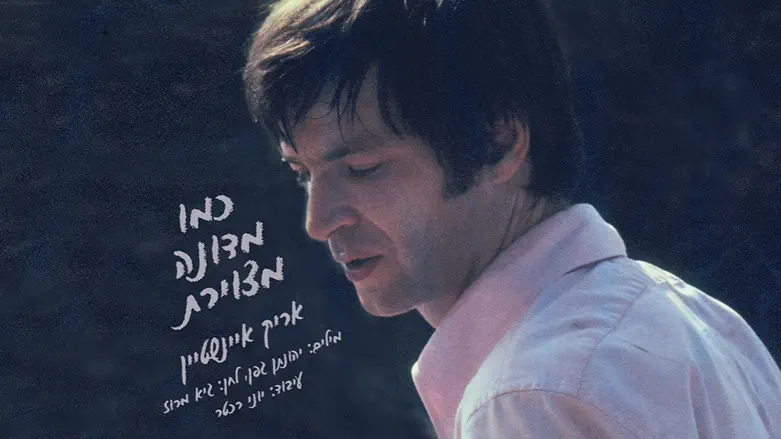 כמו
מדונה
מצוירת
אריק איינשטיין
מילים: יהונתן גפן לחן: גיא מרוז
עיבוד: יוני רכטר